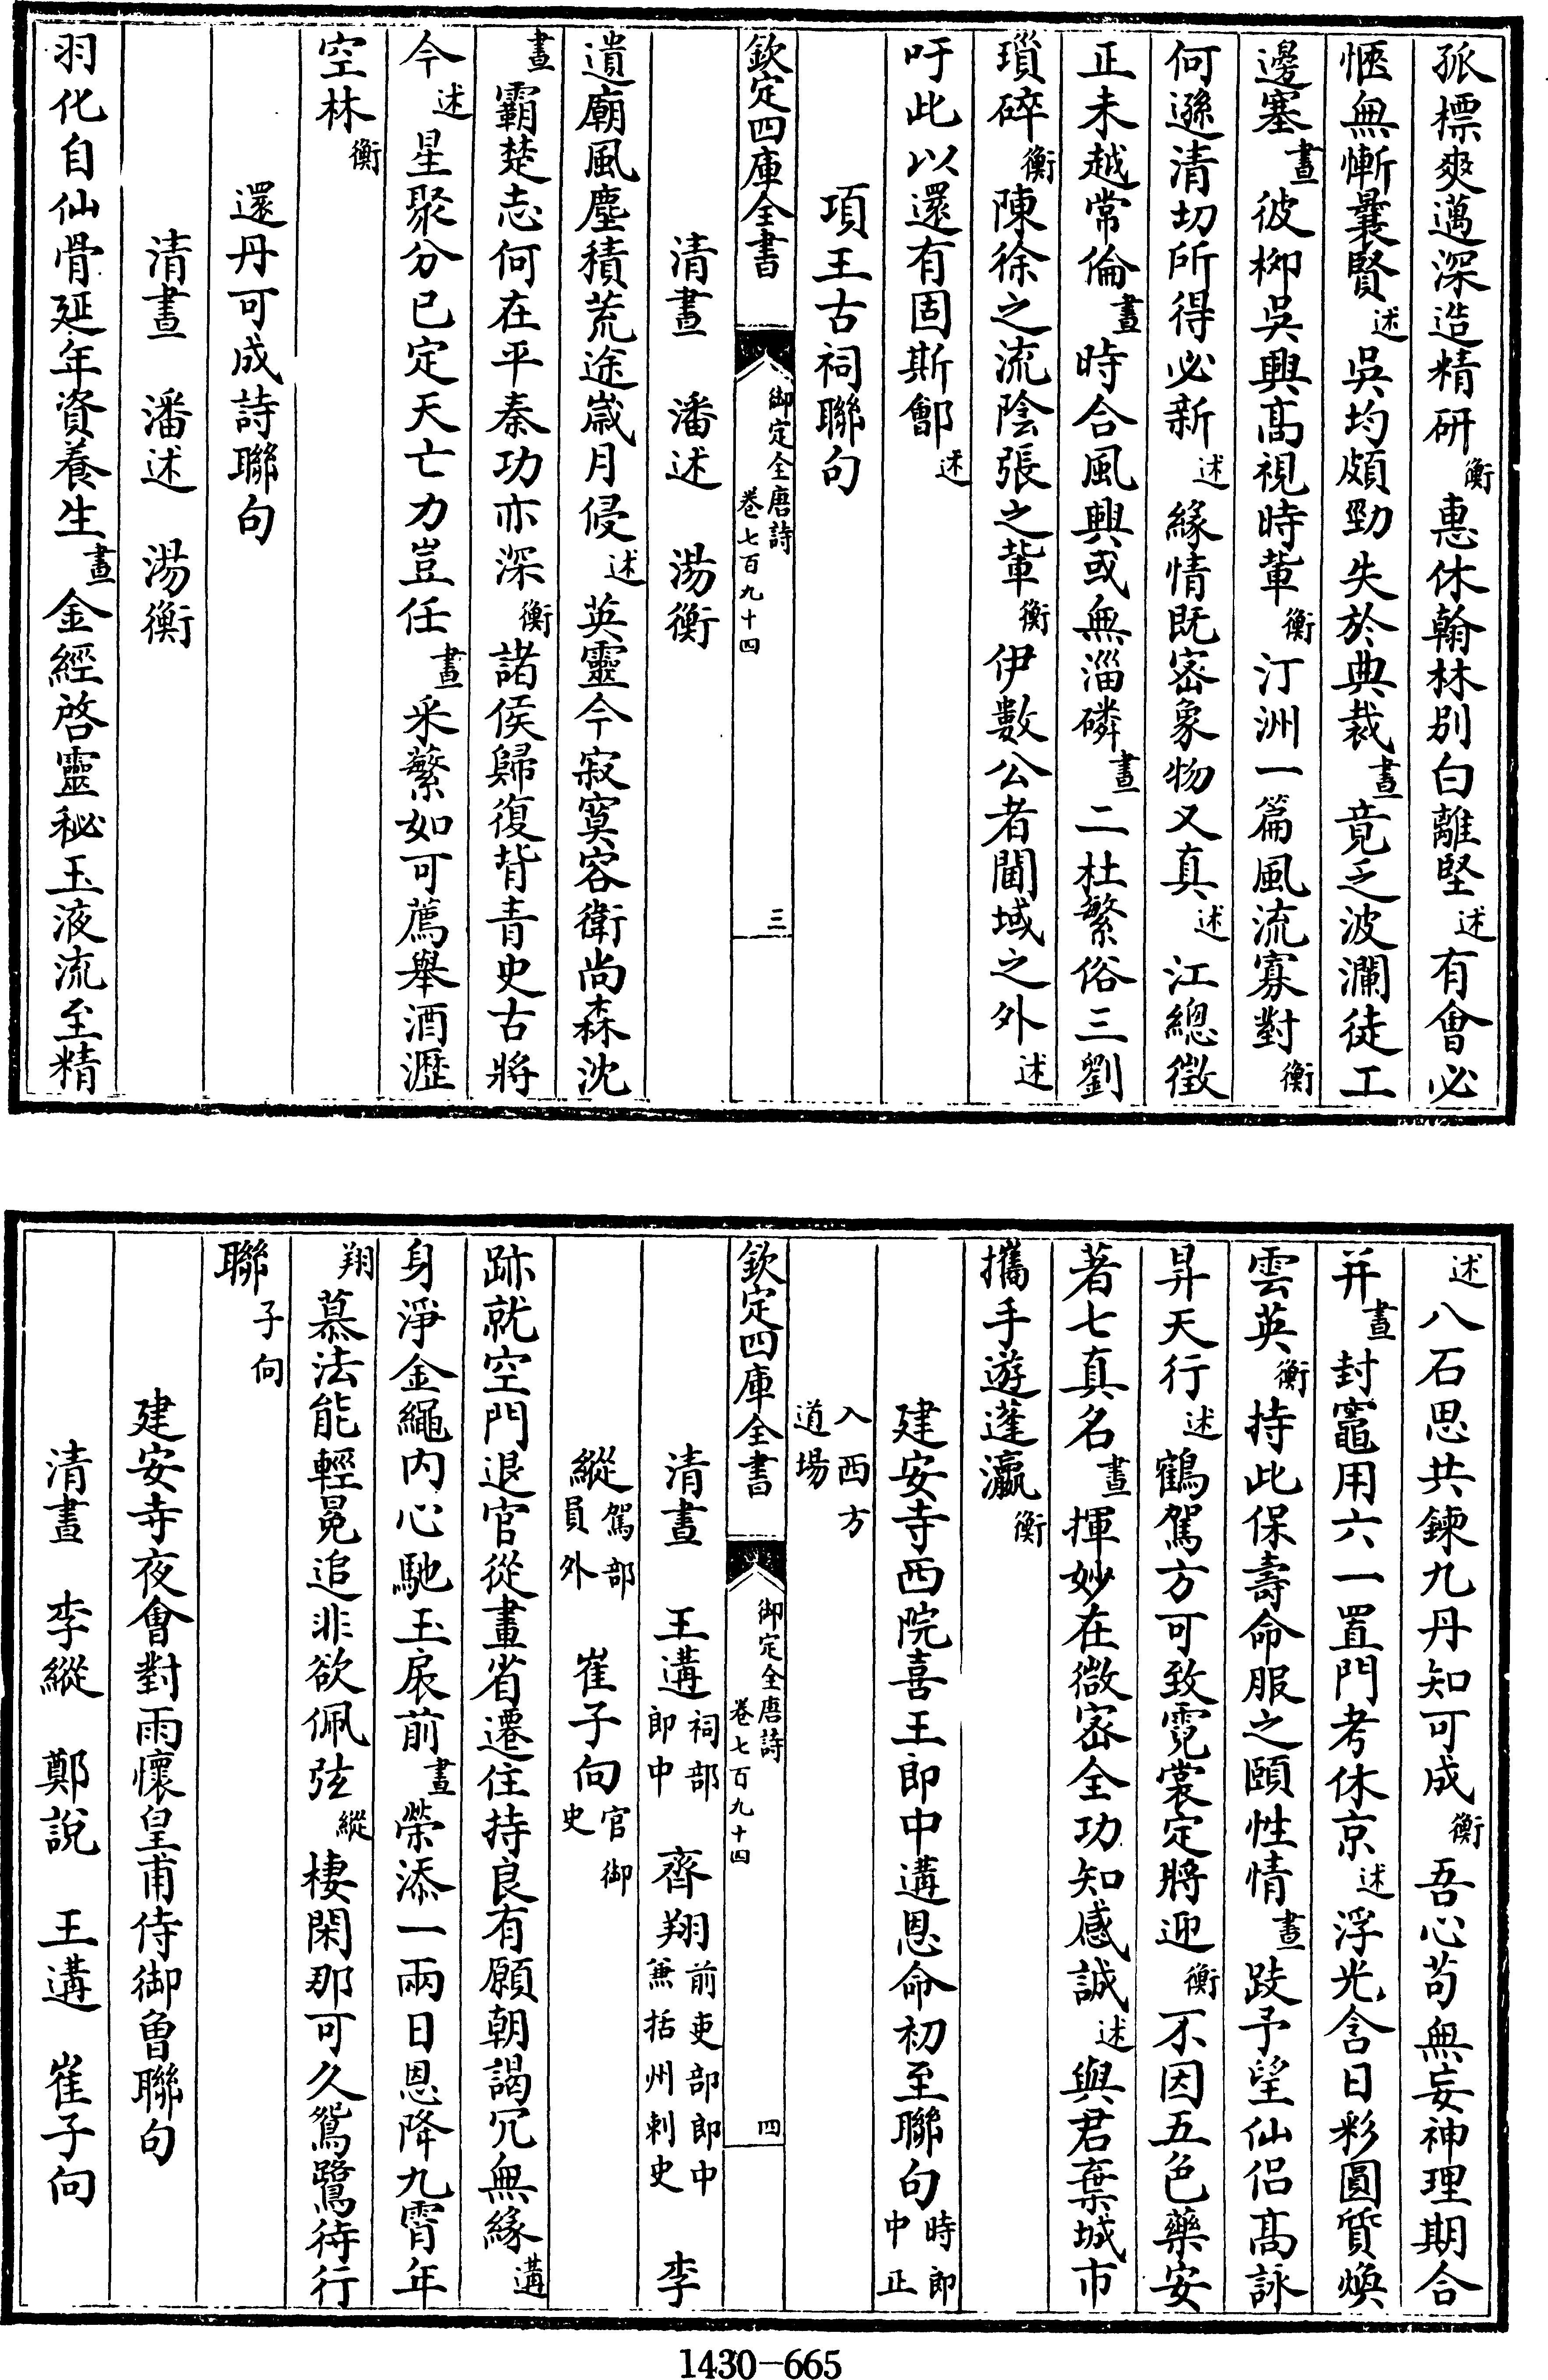 孤標爽邁深造精研衡惠休翰林別白離堅述有會必
愜無慚曩賢述吳均頗勁失於典裁晝竟乏波瀾徒工
邊塞晝彼柳吳興髙視時軰衡汀洲一篇風流寡對衡
何遜清切所得必新述緣情既宻象物又真述江總徴
正未越常倫晝時合風興或無淄磷晝二杜繁俗三劉
瑣碎衡陳徐之流陰張之軰衡伊數公者閫域之外述
吁此以還有固斯鄶述
項王古祠聯句
欽定四庫全書
御定全唐詩
卷七百九十四
三
清晝　潘述　湯衡
遺廟風塵積荒途嵗月侵述英靈今寂寞容衛尚森沈
晝霸楚志何在平秦功亦深衡諸侯歸復背青史古將
今述星聚分已定天亡力豈任晝采蘩如可薦舉酒瀝
空林衡
還丹可成詩聯句
清晝　潘述　湯衡
羽化自仙骨延年資養生晝金經啓靈秘玉液流至精
述八石思共鍊九丹知可成衡吾心苟無妄神理期合
并晝封竈用六一置門考休京述浮光含日彩圓質煥
雲英衡持此保壽命服之頤性情晝跂予望仙侣髙詠
昇天行述鶴駕方可致霓裳定將迎衡不因五色藥安
著七真名晝揮妙在微宻全功知感誠述與君棄城市
攜手遊蓬瀛衡
建安寺西院喜王郎中遘恩命初至聯句時郎中正
入西方道塲
欽定四庫全書
御定全唐詩
卷七百九十四
四
清晝　王遘祠部郎中　齊翔前吏部郎中兼括州刺史　李
縱駕部員外　崔子向官御史
跡就空門退官從畫省遷住持良有願朝謁冗無縁遘
身淨金繩内心馳玉扆前晝榮添一兩日恩降九霄年
翔慕法能輕冕追非欲佩弦縱棲閑那可久鴛鷺待行
聯子向
建安寺夜會對雨懷皇甫侍御曽聯句
清晝　李縱　鄭説　王遘　崔子向
1430—665